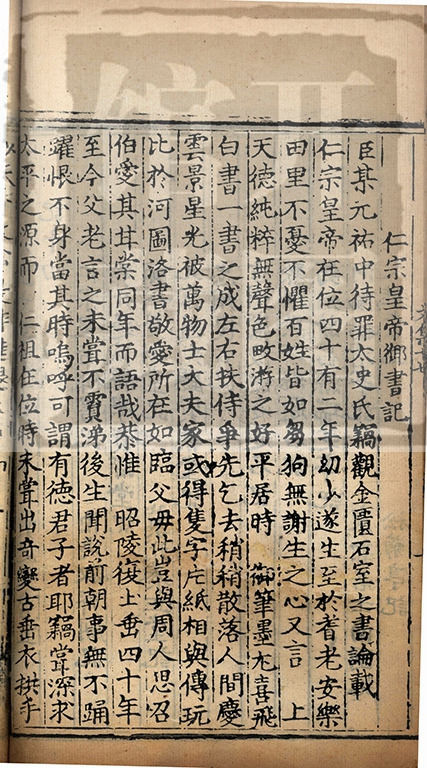 仁宗皇帝御書記
臣某元祐中待罪太史氏竊觀金匱石室之書論載
仁宗皇帝在位四十有二年幼少遂生至於耆老安樂
田里不憂不懼百姓皆如芻狗無謝生之心又言 上
天德純粹無聲色畋游之好平居時 御筆墨尤喜飛
白書一書之成左右扶侍爭先乞去稍稍散落人間慶
雲景星光被萬物士大夫家或得隻字片紙相與傳玩
比於河圖洛書敬愛所在如臨父母此豈與周人思召
伯愛其甘棠同年而語哉恭惟 昭陵復土垂四十年
至今父老言之未嘗不霣涕後生聞說前朝事無不踊
躍恨不身當其時嗚呼可謂有德君子者耶竊嘗深求
太平之源而 仁祖在位時未嘗出奇變古垂衣拱手